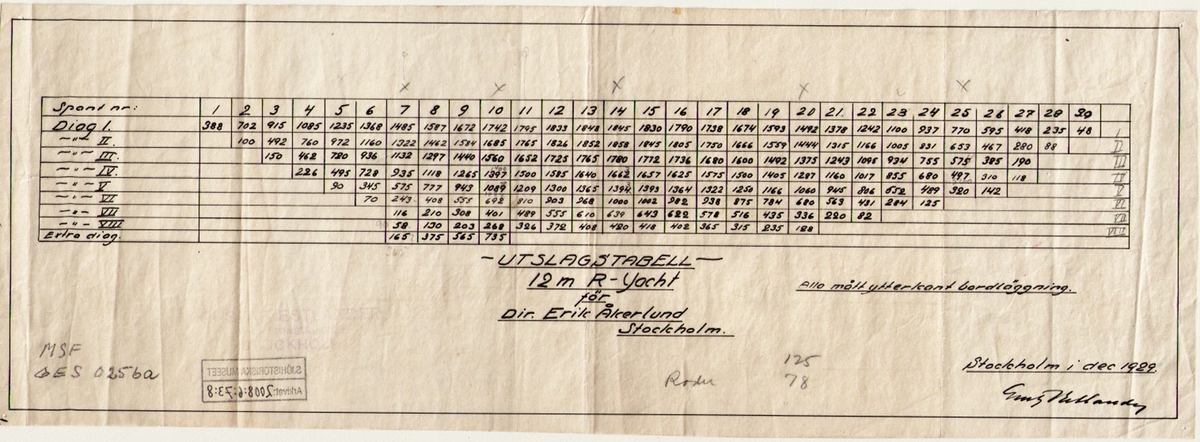 x x x x x
Spant nr: 1 2 3 4 5 6 7 8 9 10 11 12 13 14 15 16 17 18 19 20 21 22 23 24 25 26 27 28 29
Diag I. 388 702 915 1085 1235 1368 1485 1587 1672 1742 1795 1833 1848 1845 1830 1790 1738 1674 1593 1492 1378 1242 1100 937 770 595 418 235 48 I
-"- II. 100 492 760 972 1160 1322 1462 1584 1685 1765 1826 1852 1858 1845 1805 1750 1666 1559 1444 1315 1166 1005 831 653 467 280 88 II
-"- III. 150 462 720 936 1132 1297 1440 1560 1652 1725 1765 1780 1772 1736 1680 1600 1492 1375 1243 1095 934 755 575 385 190 III
-"- IV. 226 495 728 935 1118 1265 1397 1500 1585 1640 1662 1657 1625 1575 1500 1405 1287 1160 1017 855 680 497 310 118 IV
-"- V 90 345 575 777 943 1089 1209 1300 1365 1394 1393 1364 1322 1250 1166 1060 945 806 552 489 320 142 V
-"- VI 70 243 408 555 692 810 903 968 1000 1002 982 938 875 784 680 563 431 284 125 VI
-"- VII 116 210 308 401 489 555 610 639 643 622 578 516 435 336 220 82 VII
-"- VIII 58 130 203 268 326 372 408 420 418 402 365 315 235 128 VIII
Extra diag. 165 375 565 735
-UTSLAGSTABELL-
12 m R-Yacht
för
Dir. Erik Åkerlund
Stockholm.
Alla mått ytterkant bordläggning.
MSF
ES 0256a
SJÖHISTORISKA MUSEET
Arkivet:2008:6:73:8
125
Roder 78
Stockholm i dec 1929.